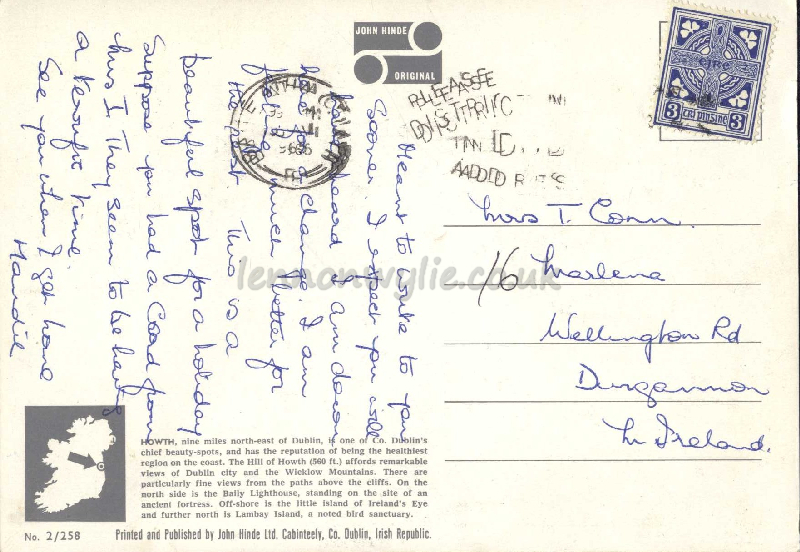 JOHN HINDE
ORIGINAL
ÉIRE
3
3
Meant to write to you
sooner. I expect you will
have heard I am down
here for a change. I am
feeling much better for
the rest. This is a
beautiful spot for a holiday
Suppose you had a Card from
Mrs I. They seem to be having
a time.
See you when I get home
Maudie
Mrs T. Conn.
16
Marlena
Wellington Rd
Dungannon
N. Ireland.
lennonwylie.co.uk
HOWTH, nine miles north-east of Dublin, is one of Co. Dublin's
chief beauty-spots, and has the reputation of being the healthiest
region on the coast. The Hill of Howth (560 ft.) affords remarkable
views of Dublin city and the Wicklow Mountains. There are
particularly fine views from the paths above the cliffs. On the
north side is the Baily Lighthouse, standing on the site of an
ancient fortress. Off-shore is the little island of Ireland's Eye
and further north is Lambay Island, a noted bird sanctuary.
No. 2/258
Printed and Published by John Hinde Ltd. Cabinteely, Co. Dublin, Irish Republic.